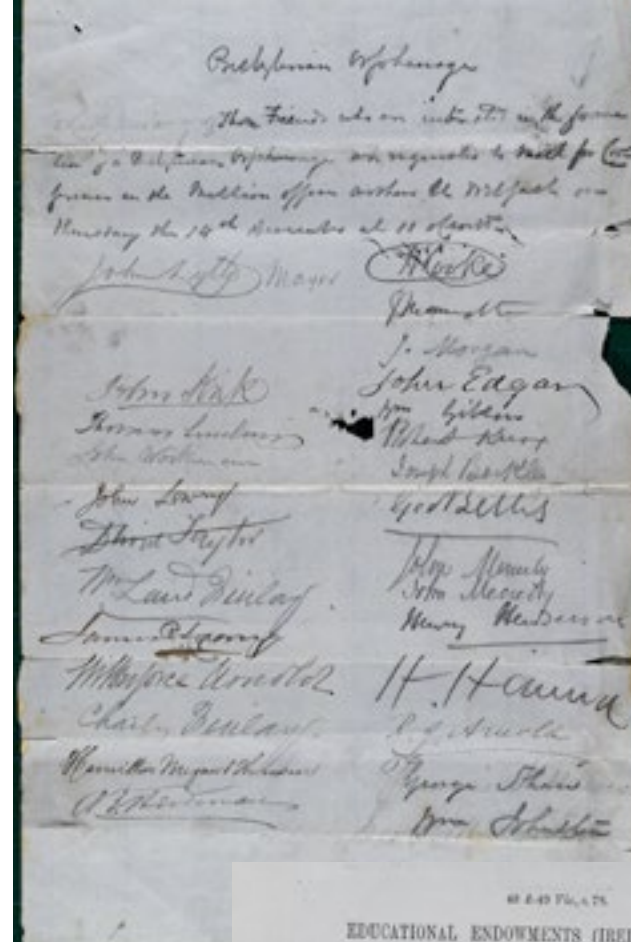 Presbyterian Orphanage
Those Friends who are interested in the forma
tion of a Presbyterian Orphanage are requested to meet for Con
ference in the Mission offices Belfast on
Thursday the 14th December at 11 oclock
John Lytle Mayor
H Cooke
J. Morgan
John Kirk
John Edgar
Wm Gibson
Thomas Sinclair
Robert Knox
John Workman
Joseph
John Lowry
Geo Bellis
David Taylor
John
Wm Laird Finlay
John Mecredy
Henry Henderson
James
Wilberforce Arnold
H. Hanna
Charles Finlay
R. J. Arnold
Hamilton
George Shaw
Wm Johnston
48 & 49 Vic., c. 78.
EDUCATIONAL ENDOWMENTS (IREL